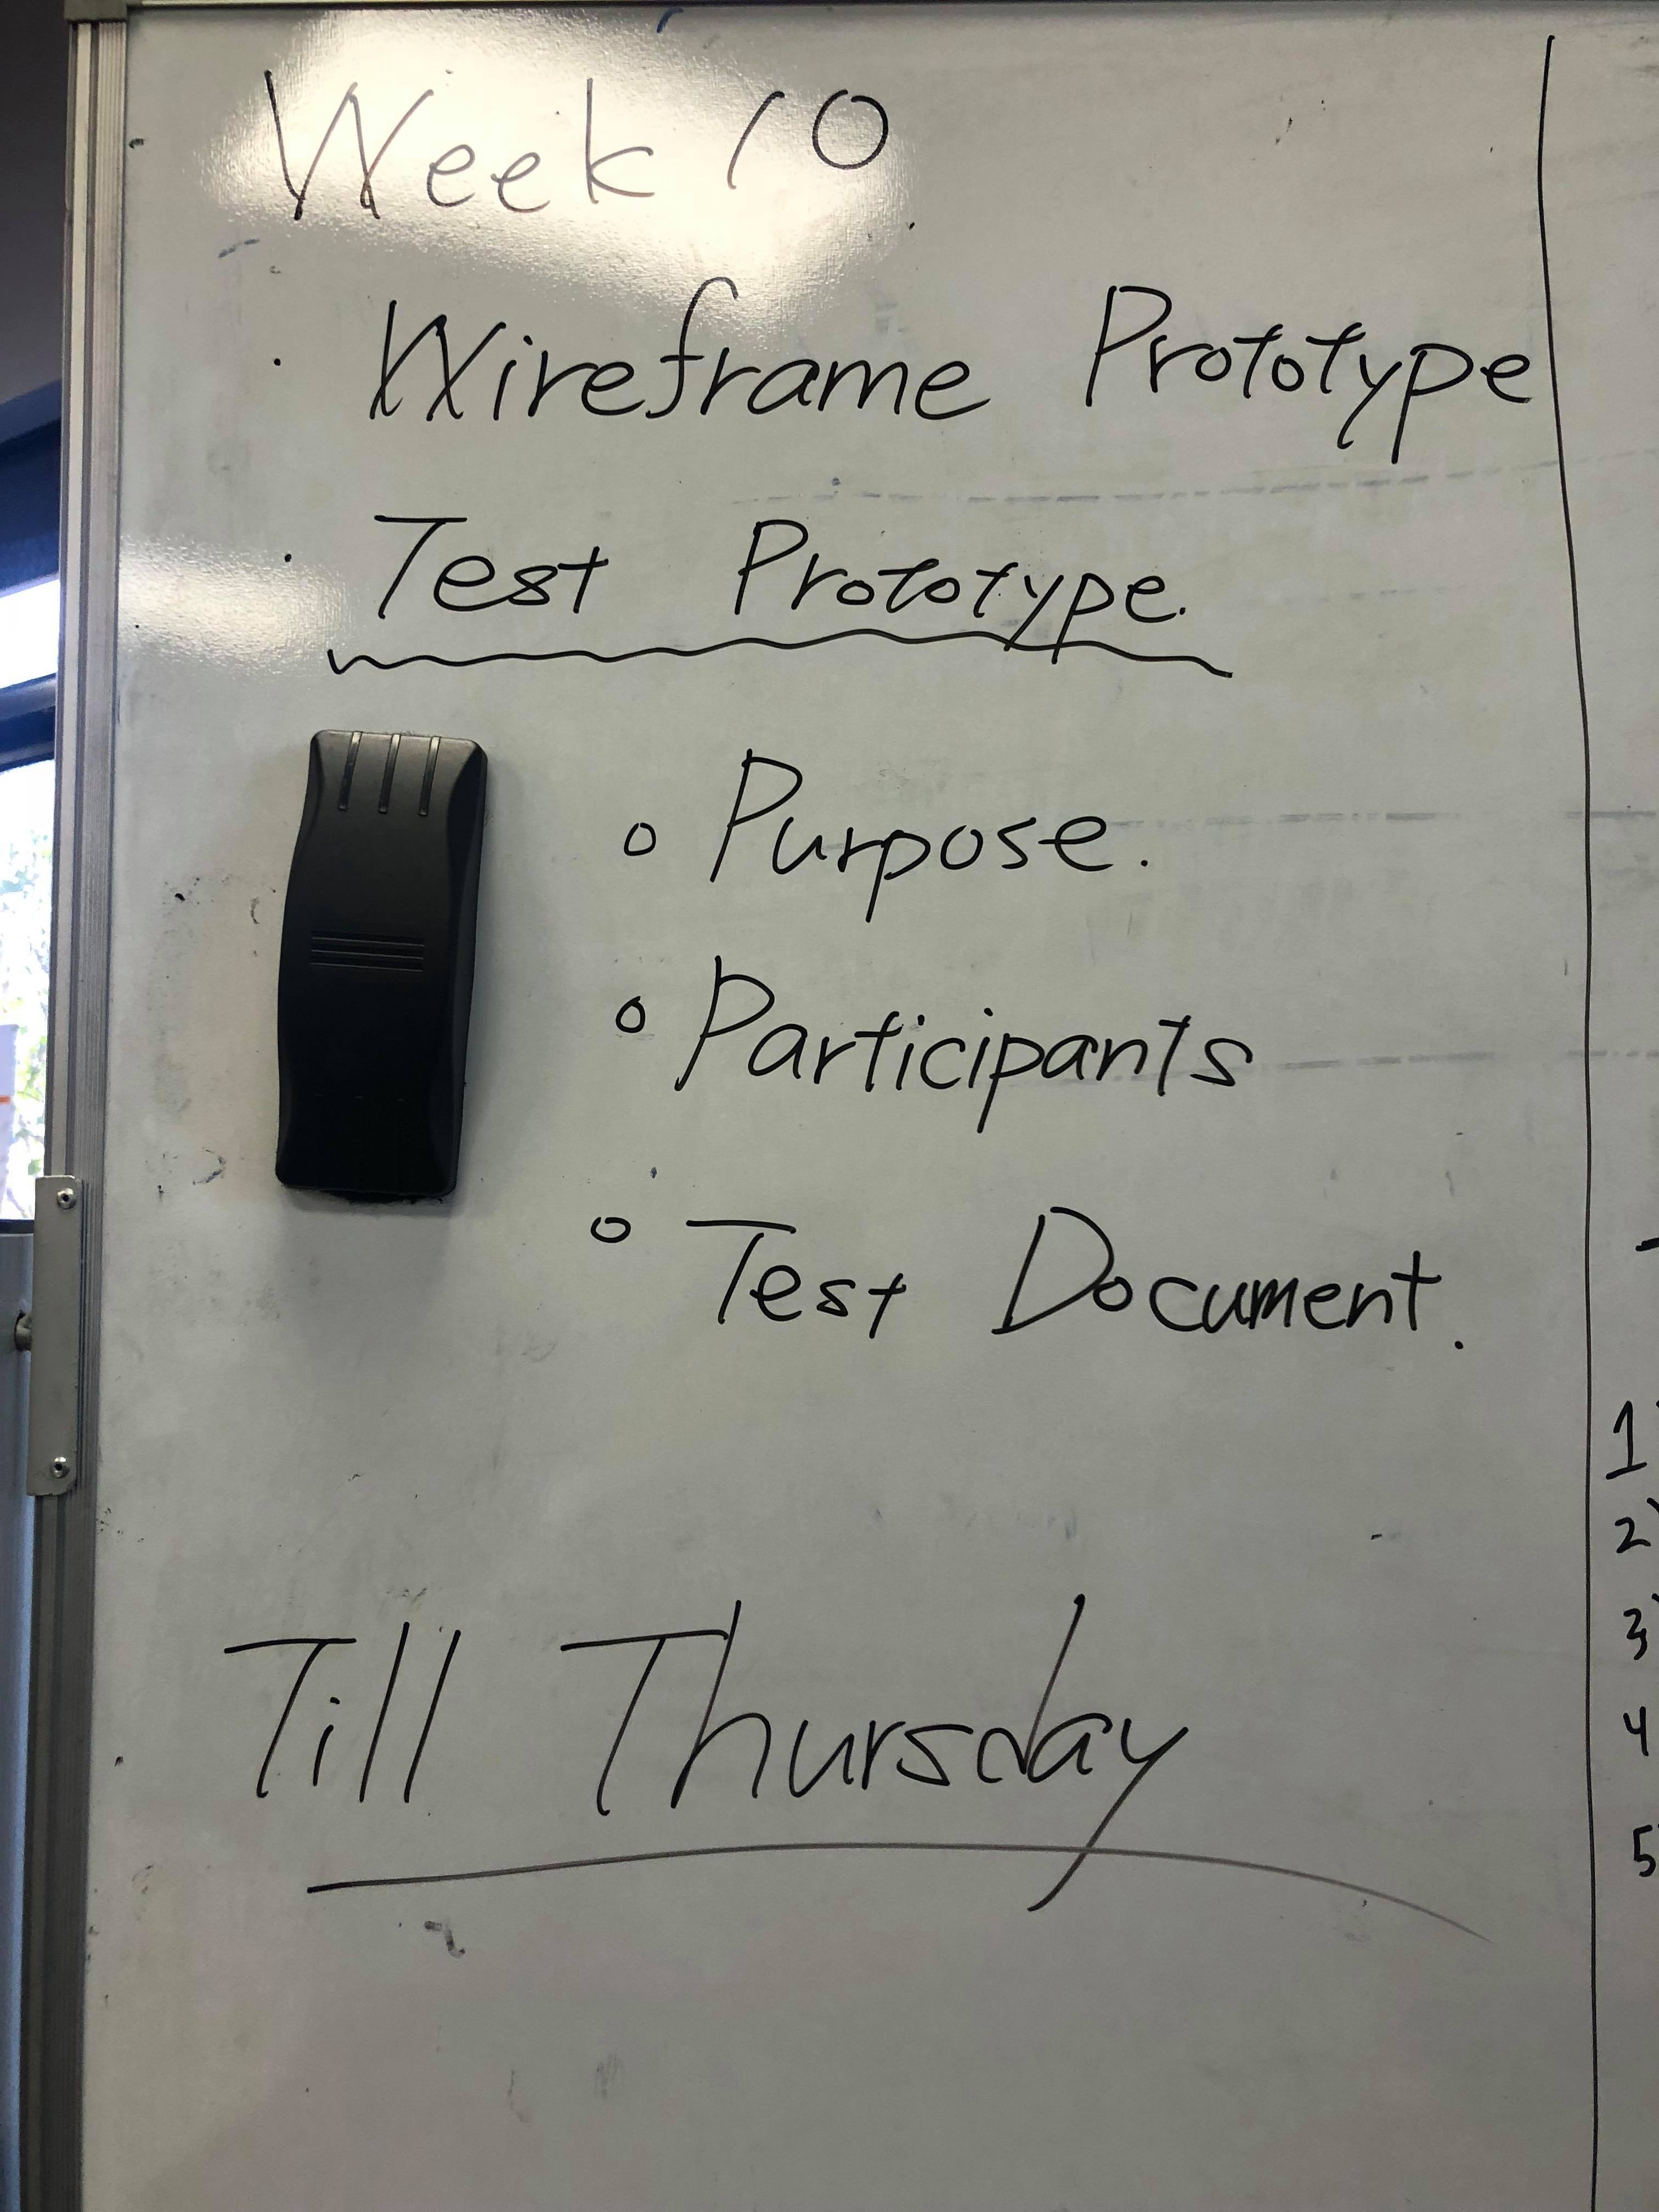 Week 10
· Wireframe Prototype
· Test Prototype.
o Purpose.
o Participants
o Test Document.
Till Thursday
1
2
3
4
5